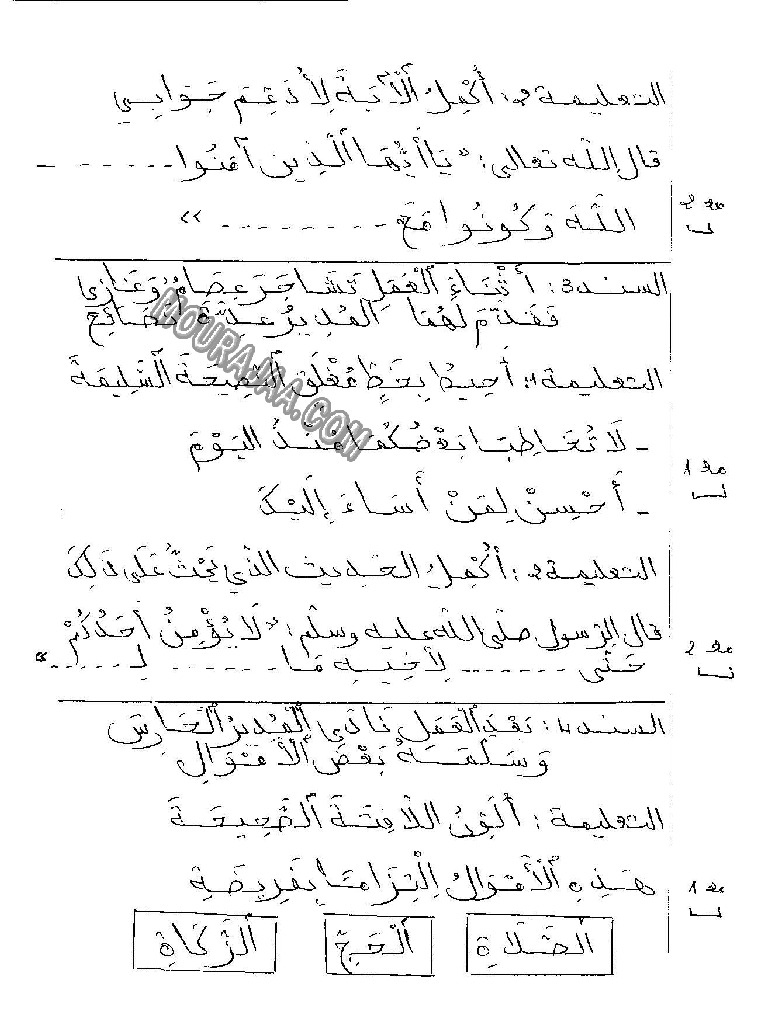 التعليمة 2: أُكْمِلُ ٱلْآيَةَ لِأُدَعِّمَ جَوَابِي
قال اللّه تعالى: "يَا أَيُّهَا ٱلَّذِينَ آمَنُوا.......
اللَّهَ وَكُونُوا مَعَ ........ "
2 مع
السند 3: أَثْنَاءَ ٱلْعَمَلِ تَشَاجَرَ عِصَامُ وَغَازِي
فَقَدَّمَ لَهُمَا ٱلْمُدِيرُ عِدَّةَ نَصَائِحَ
MOURAJAA.COM
التعليمة 1: أُحِيطُ بِخَطٍّ مُغْلَقٍ ٱلنَّصِيحَةَ ٱلسَّلِيمَةَ
- لَا تُخَاطِبَا بَعْضُكُمَا مُنْذُ اليَوْمَ
- أَحْسِنْ لِمَنْ أَسَاءَ إِلَيْكَ
1 مع
التعليمة 2: أُكْمِلُ الحَدِيث الذّي يَحُثُّ عَلَى ذَلِكَ
قال الرّسول صلّى اللّه عليه وسلّم: "لَا يُؤْمِنُ أَحَدُكُمْ
حَتَّى ........ لِأَخِيهِ مَا ........ لِـ ......"
2 مع
السند 4: بَعْدَ ٱلْعَمَلِ نَادَى ٱلْمُدِيرُ ٱلْحَارِسَ
وَسَلَّمَهُ بَعْضَ ٱلْأَمْوَالِ
التعليمة: أُلَوِّنُ اللَّافِتَةَ ٱلصَّحِيحَةَ
هَذِهِ ٱلْأَمْوَالُ اِلْتِزَامًا بِفَرِيضَةِ
1 مع
ٱلصَّلَاةِ ٱلْحَجِّ ٱلزَّكَاةِ